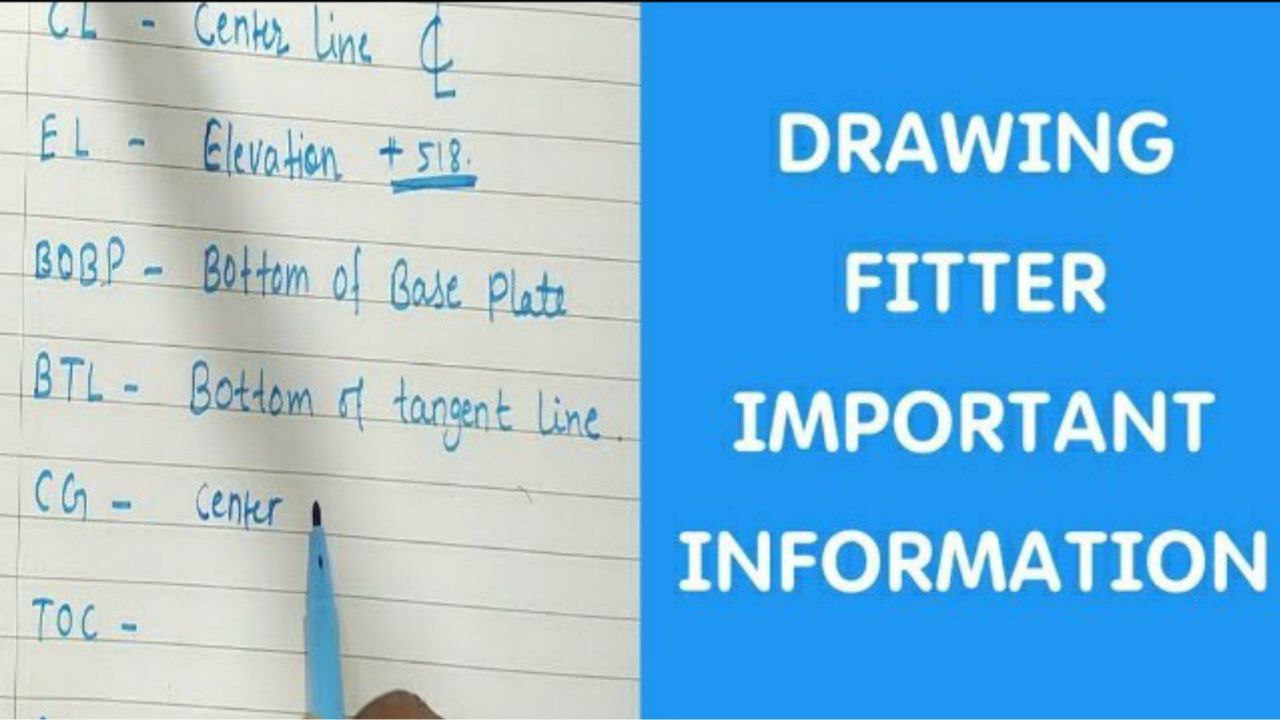 CL - Center line ℄
EL - Elevation + 518.
BOBP - Bottom of Base Plate
BTL - Bottom of tangent line.
CG - Center
TOC -
DRAWING
FITTER
IMPORTANT
INFORMATION